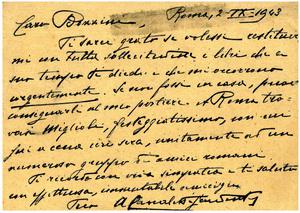 Caro Bonzini, Roma, 2-IX-1943
Ti sarei grato se volessi restituir
mi con tutta sollecitudine i libri che a
suo tempo ti diedi e che mi occorrono
urgentemente. Se non fossi in casa, puoi
consegnarli al mio portiere. A Roma tro-
vai Miglioli, festeggiatissimo, con cui
fui a cena ieri sera, unitamente ad un
numeroso gruppo di amici romani
Ti ricordo con viva simpatia e ti saluto
con affettuosa, immutabile amicizia
Tuo